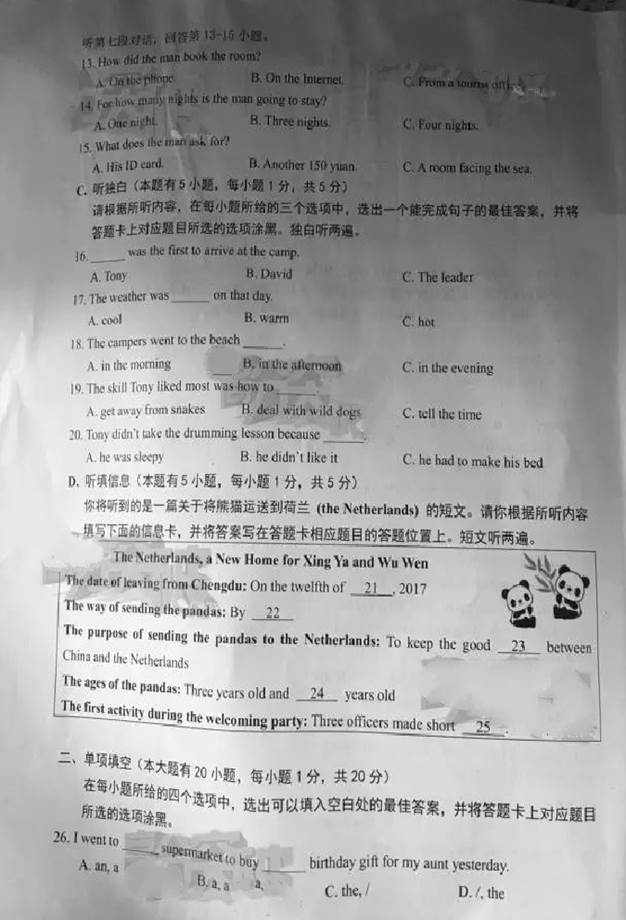 听第七段对话，回答第 13-15 小题。
13. How did the man book the room?
A. On the phone. B. On the Internet. C. From a tourist office.
14. For how many nights is the man going to stay?
A. One night. B. Three nights. C. Four nights.
15. What does the man ask for?
A. His ID card. B. Another 150 yuan. C. A room facing the sea.
C. 听独白（本题有 5 小题，每小题 1 分，共 5 分）
请根据所听内容，在每小题所给的三个选项中，选出一个能完成句子的最佳答案，并将
答题卡上对应题目所选的选项涂黑。独白听两遍。
16. ______ was the first to arrive at the camp.
A. Tony B. David C. The leader
17. The weather was ______ on that day.
A. cool B. warm C. hot
18. The campers went to the beach ______.
A. in the morning B. in the afternoon C. in the evening
19. The skill Tony liked most was how to ______.
A. get away from snakes B. deal with wild dogs C. tell the time
20. Tony didn't take the drumming lesson because ______.
A. he was sleepy B. he didn't like it C. he had to make his bed
D. 听填信息（本题有 5 小题，每小题 1 分，共 5 分）
你将听到的是一篇关于将熊猫运送到荷兰 (the Netherlands) 的短文。请你根据所听内容
填写下面的信息卡，并将答案写在答题卡相应题目的答题位置上。短文听两遍。
The Netherlands, a New Home for Xing Ya and Wu Wen
The date of leaving from Chengdu: On the twelfth of __21__, 2017
The way of sending the pandas: By __22__
The purpose of sending the pandas to the Netherlands: To keep the good __23__ between
China and the Netherlands
The ages of the pandas: Three years old and __24__ years old
The first activity during the welcoming party: Three officers made short __25__.
二、单项填空（本大题有 20 小题，每小题 1 分，共 20 分）
在每小题所给的四个选项中，选出可以填入空白处的最佳答案，并将答题卡上对应题目
所选的选项涂黑。
26. I went to ______ supermarket to buy ______ birthday gift for my aunt yesterday.
A. an, a B. a, a a, C. the, / D. /, the